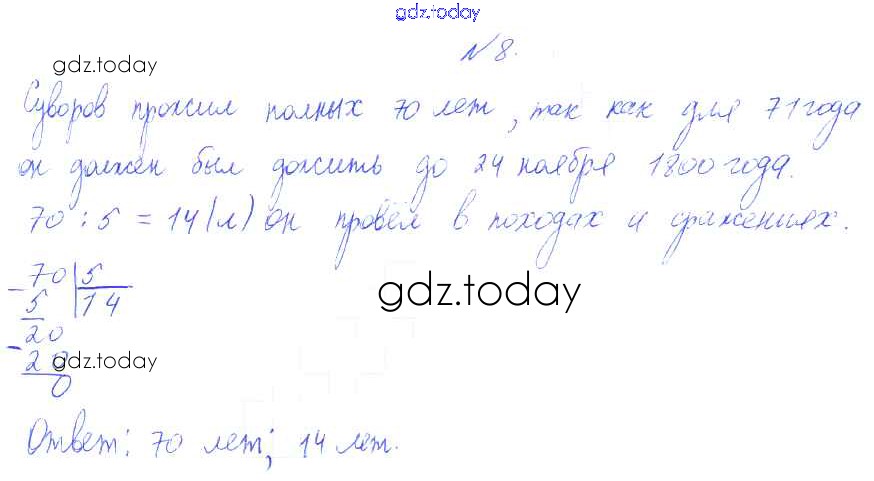 gdz.today
№ 8.
gdz.today
Суворов прожил полных 70 лет, так как для 71 года
он должен был дожить до 24 ноября 1800 года.
70 : 5 = 14 (л) он провёл в походах и сражениях.
70 | 5
5 14
gdz.today
20
20
gdz.today
0
Ответ: 70 лет; 14 лет.